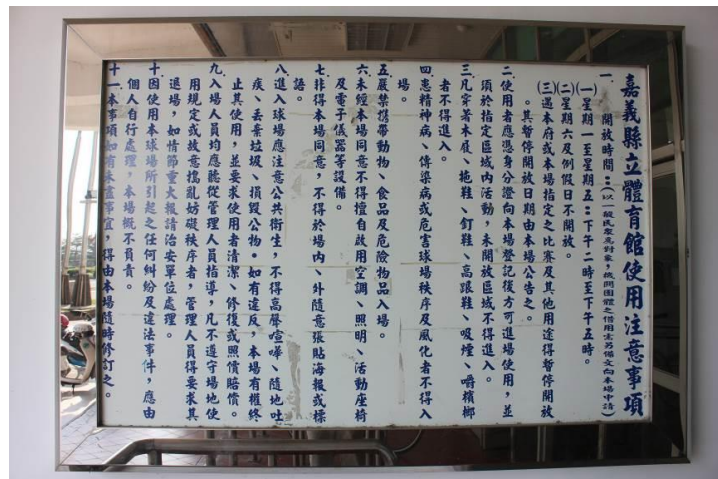 嘉義縣立體育館使用注意事項
一、開放時間：(以一般民眾為對象，機關團體之借用需另備文向本場申請)
(一)星期一至星期五：下午二時至下午五時。
(二)星期六及例假日不開放。
(三)遇本府或本場指定之比賽及其他用途得暫停開放
。其暫停開放日期由本場公告之。
二、使用者應憑身分證向本場登記後方可進場使用，並
須於指定區域內活動，未開放區域不得進入。
三、凡穿著木屐、拖鞋、釘鞋、高跟鞋、吸煙、嚼檳榔
者不得進入。
四、患精神病、傳染病或危害球場秩序及風化者不得入
場。
五、嚴禁攜帶動物、食品及危險物品入場。
六、未經本場同意不得擅自啟用空調、照明、活動座椅
及電子儀器等設備。
七、非得本場同意，不得於場內、外隨意張貼海報或標
語。
八、進入球場應注意公共衛生，不得高聲喧嘩、隨地吐
痰、丟棄垃圾、損毀公物。如有違反，本場有權終
止其使用，並要求使用者清潔、修復或照價賠償。
九、入場人員均應聽從管理人員指導，凡不遵守場地使
用規定或故意搗亂妨礙秩序者，管理人員得要求其
退場，如情節重大報請治安單位處理。
十、因使用本球場所引起之任何糾紛及違法事件，應由
個人自行處理，本場概不負責。
十一、本事項如有未盡事宜，得由本場隨時修訂之。